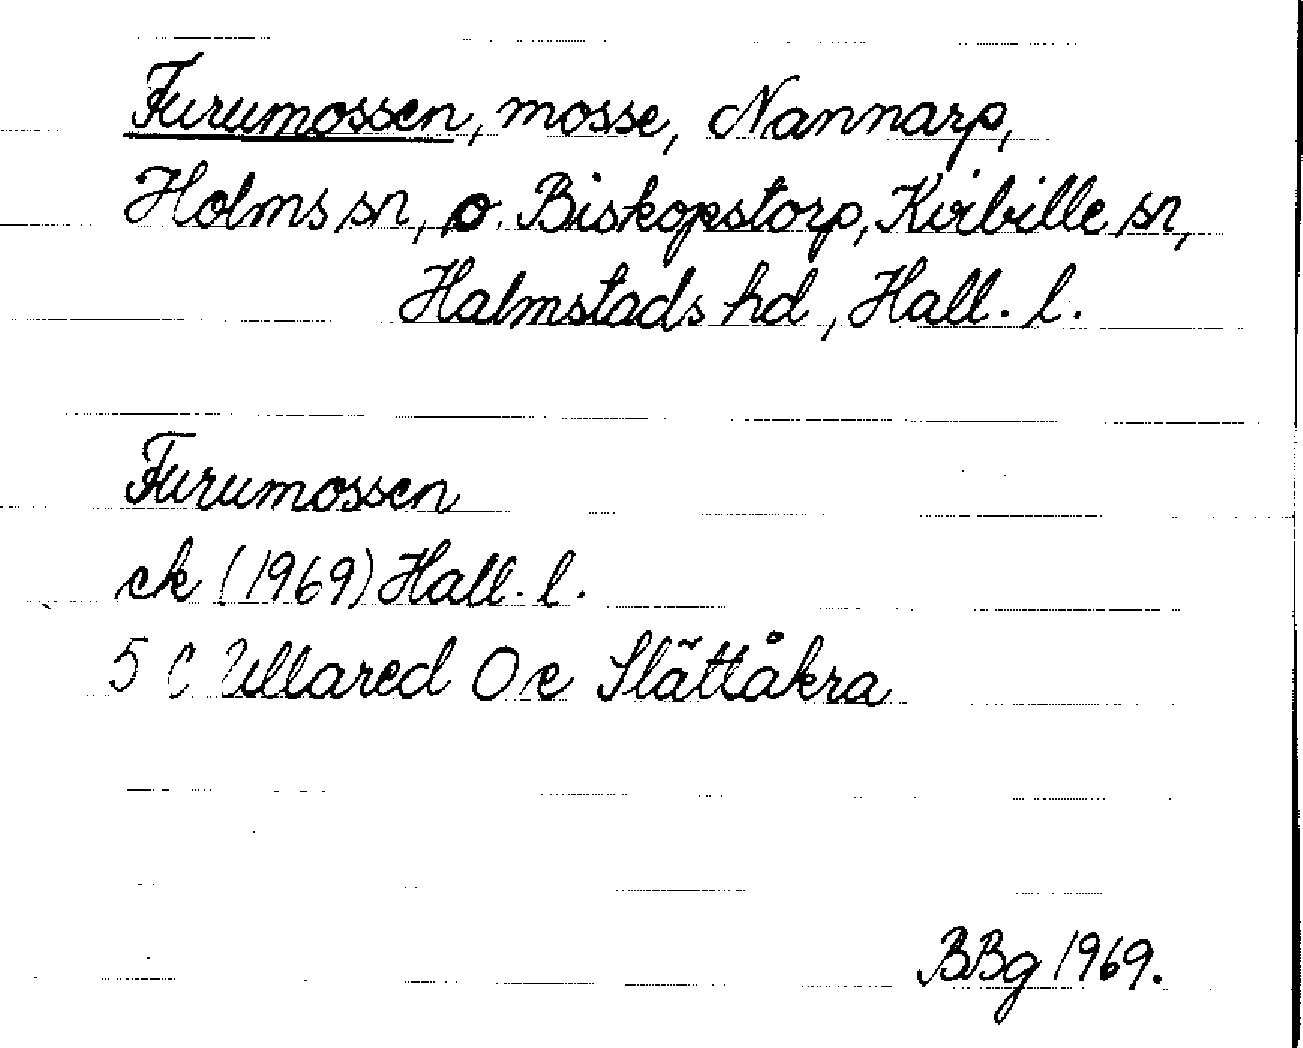 Furumossen, mosse, Nannarp,
Holms sn, o. Biskopstorp, Kvibille sn,
Halmstads hd, Hall. l.
Furumossen
ek (1969) Hall. l.
5 C Ullared 0 e Slättåkra
BBg 1969.